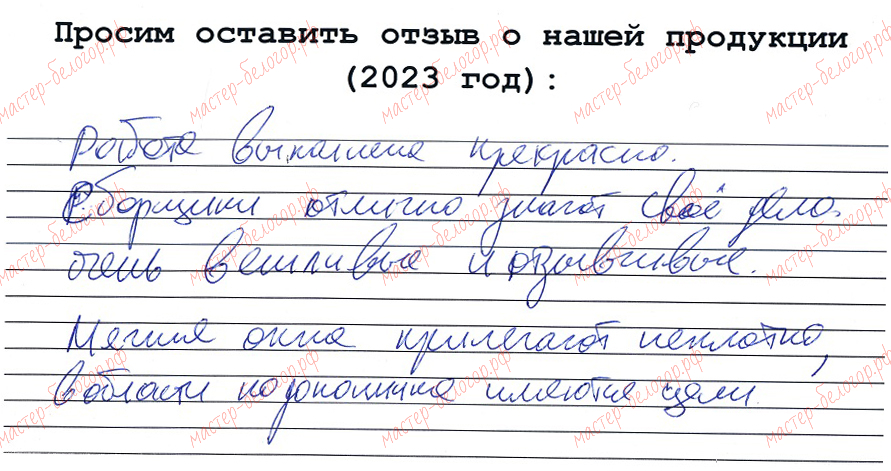 Просим оставить отзыв о нашей продукции
(2023 год):
Работа выполнена прекрасно.
Сборщики отлично знают своё дело.
очень вежливые и отзывчивые.
Мягкие окна прилегают неплотно,
в области подоконника имеются щели.
мастер-белогор.рф